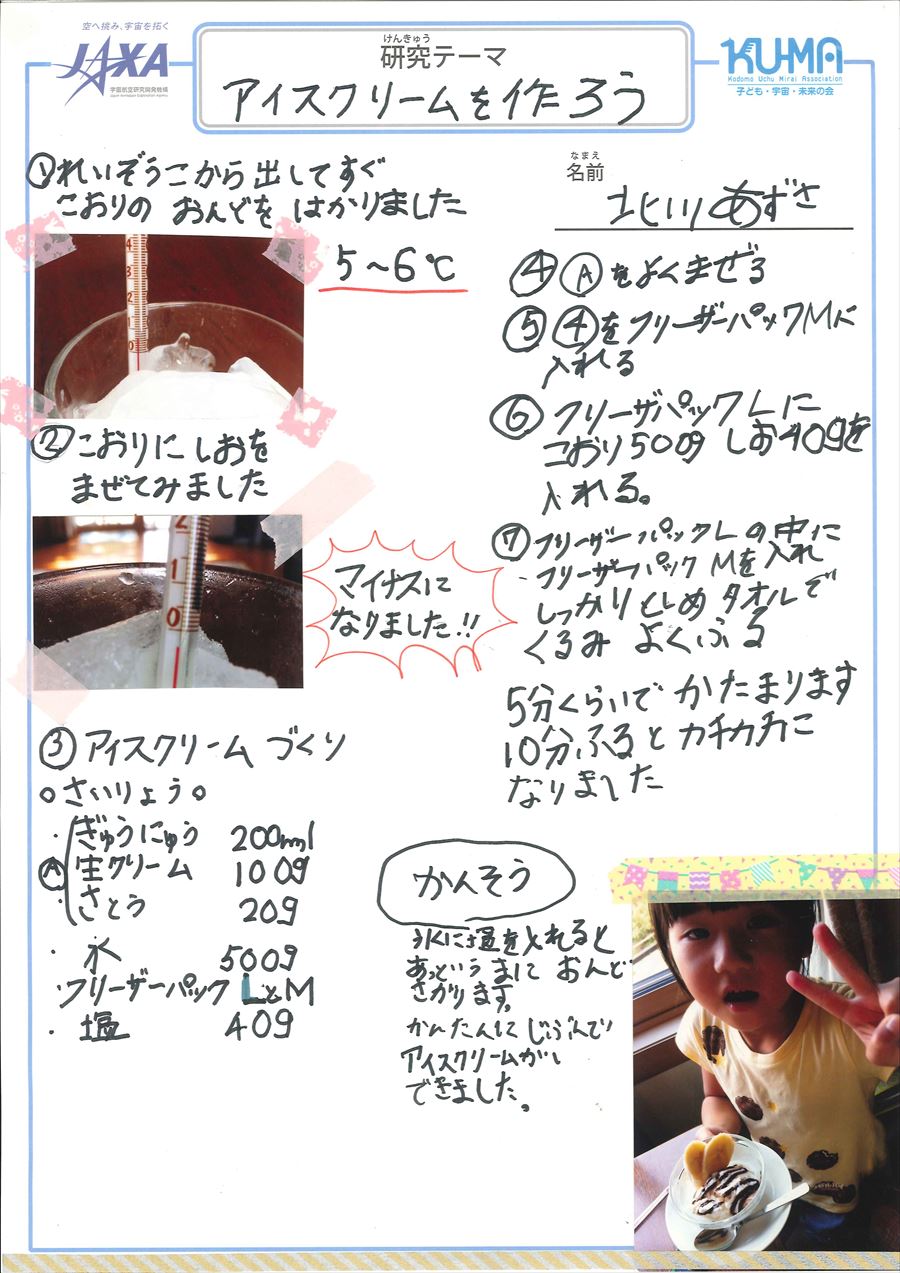 空へ挑み、宇宙を拓く
JAXA
宇宙航空研究開発機構
Japan Aerospace Exploration Agency
けんきゅう
研究テーマ
アイスクリームを作ろう
KU-MA
Kodomo Uchu Mirai Association
子ども・宇宙・未来の会
なまえ
名前
北川あずさ
①れいぞうこから出してすぐ
こおりの おんどを はかりました
5～6℃
4
3
2
1
0
②こおりに しおを
まぜてみました
2
1
0
マイナスに
なりました!!
③アイスクリーム づくり
○さいりょう○
Ⓐ
・ぎゅうにゅう 200ml
・生クリーム 100g
・さとう 20g
・氷 500g
・フリーザーパック LとM
・塩 40g
④ Ⓐをよくまぜる
⑤ ④をフリーザーパックMに
入れる
⑥ フリーザパックLに
こおり500g しお40gを
入れる。
⑦フリーザーパックLの中に
フリーザーパックMを入れ
しっかりとしめ タオルで
くるみ よくふる
5分くらいで かたまります
10分ふると カチカチに
なりました
かんそう
氷に塩を入れると
あっというまに おんど
さがります。
かんたんに じぶんで
アイスクリームが
できました。